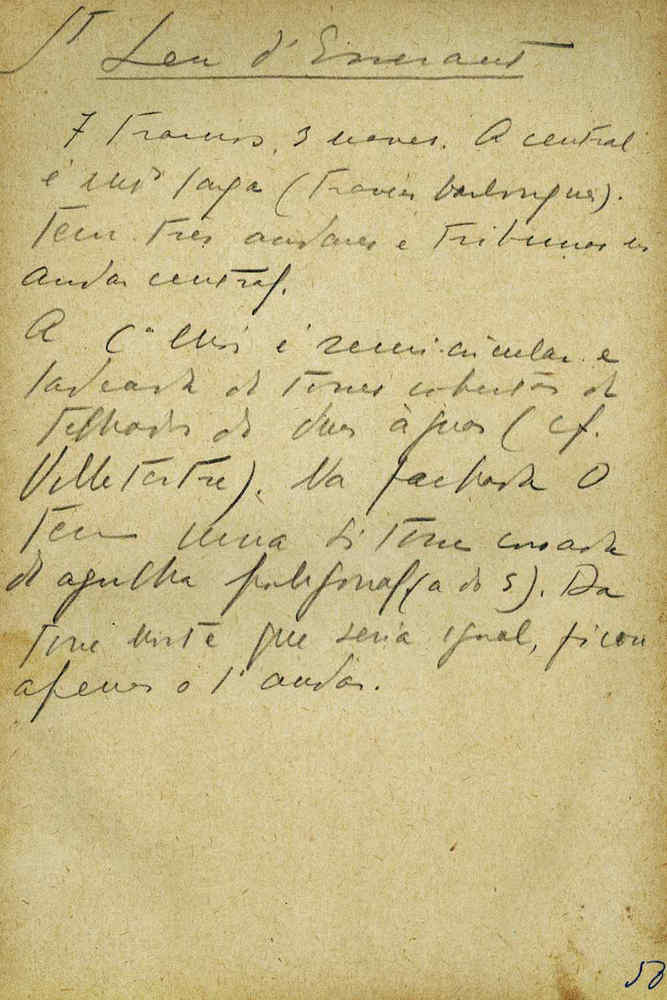 St Leu d'Esserant
7 tramos, 3 naves. A central
é mto larga (tramos barlongues).
Tem três andares e tribunas no
andar central.
A é semi-circular e
ladeada de torres cobertas de
telhados de duas águas (cf.
Villetertre). Na fachada O
tem uma só torre coroada
de agulha poligonal (a do S). Da
torre norte que seria igual, ficou
apenas o 1º andar.